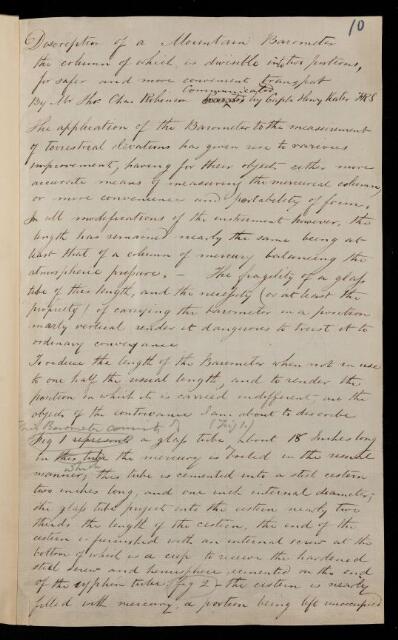 10
Description of a Mountain Barometer
the column of which, is divisible into two portions,
for safer and more convenient transport
Communicated
By Mr Thos Chas Robinson by Captn Henry Kater FRS
The application of the Barometer to the measurement
of terrestrial elevations has given rise to various
improvements, having for their object either more
accurate means of measuring the mercurial column,
or more convenience and portability of form.
In all modifications of the instrument however, the
length has remained nearly the same being at
least that of a column of mercury balancing the
atmospheric pressure. — The fragility of a glass
tube of this length, and the necessity (or at least the
propriety) of carrying the barometer in a position
nearly vertical render it dangerous to trust it to
ordinary conveyance
To reduce the length of the Barometer when not in use
to one half the usual length, and to render the
position in which it is carried indifferent, are the
objects of the contrivance I am about to describe
The Barometer consists of (Fig 1.)
Fig 1 represents a glass tube, about 18 Inches long
In this tube the mercury is boiled in the usual
which
manner, this tube is cemented into a steel cistern
two inches long, and one inch internal diameter,
the glass tube project into the cistern nearly two
thirds the length of the cistern, the end of the
cistern is furnished with an internal screw at the
bottom of which is a cup to receive the hardened
steel screw and hemisphere cemented on the end
of the syphon tube (fig 2 — the cistern is nearly
filled with mercury, a portion being left unoccupied